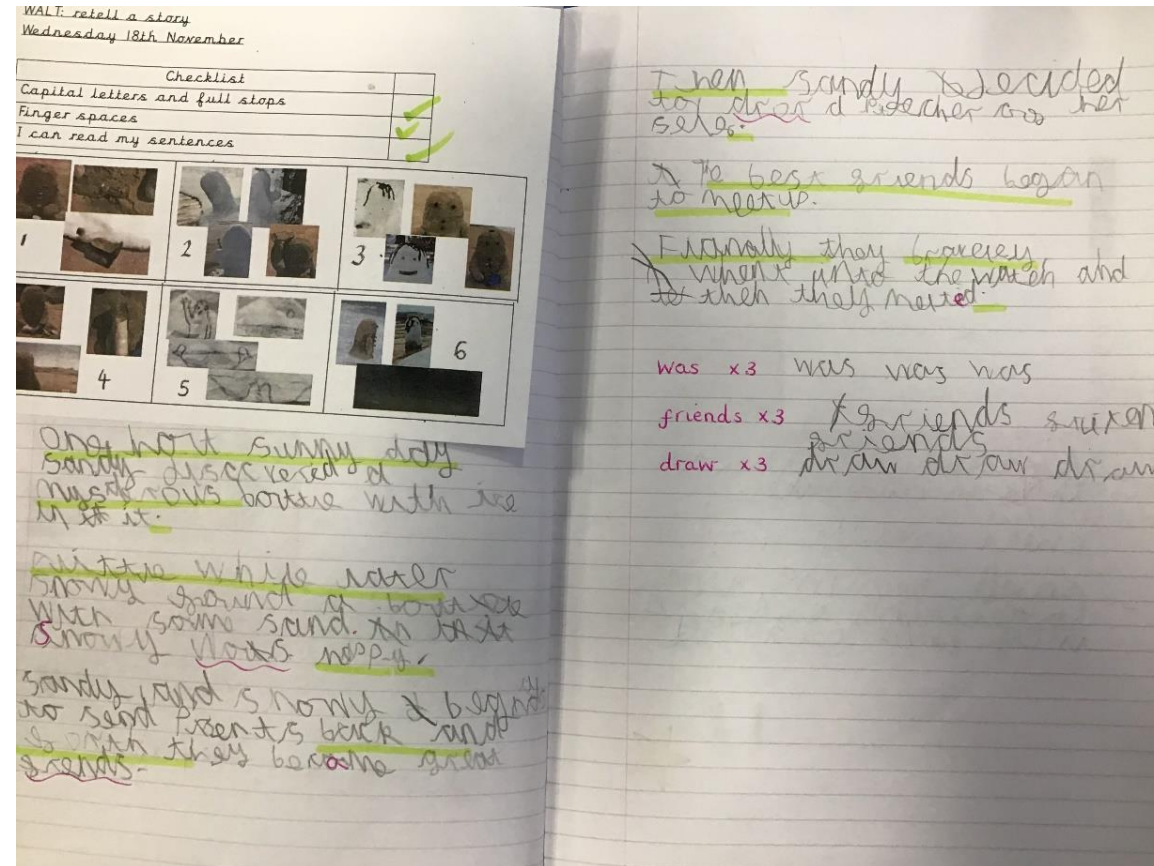 WALT: retell a story
Wednesday 18th November
Checklist
Capital letters and full stops
Finger spaces
I can read my sentences
1
2
3
4
5
6
One hort sunny day
sandy discovered a
bottue with ice
in it.
while later
snowy found a
with some sand. in it
Snowy happy.
Sandy and snowy
to send Presents back and
forth they became great
frends.
Then sandy decided
to drer a of her
selfe.
The best friends began
to meet up.
Fianally they
whent into the and
then they melted.
was x3 was was was
friends x3 friends
friends
draw x3 draw draw draw